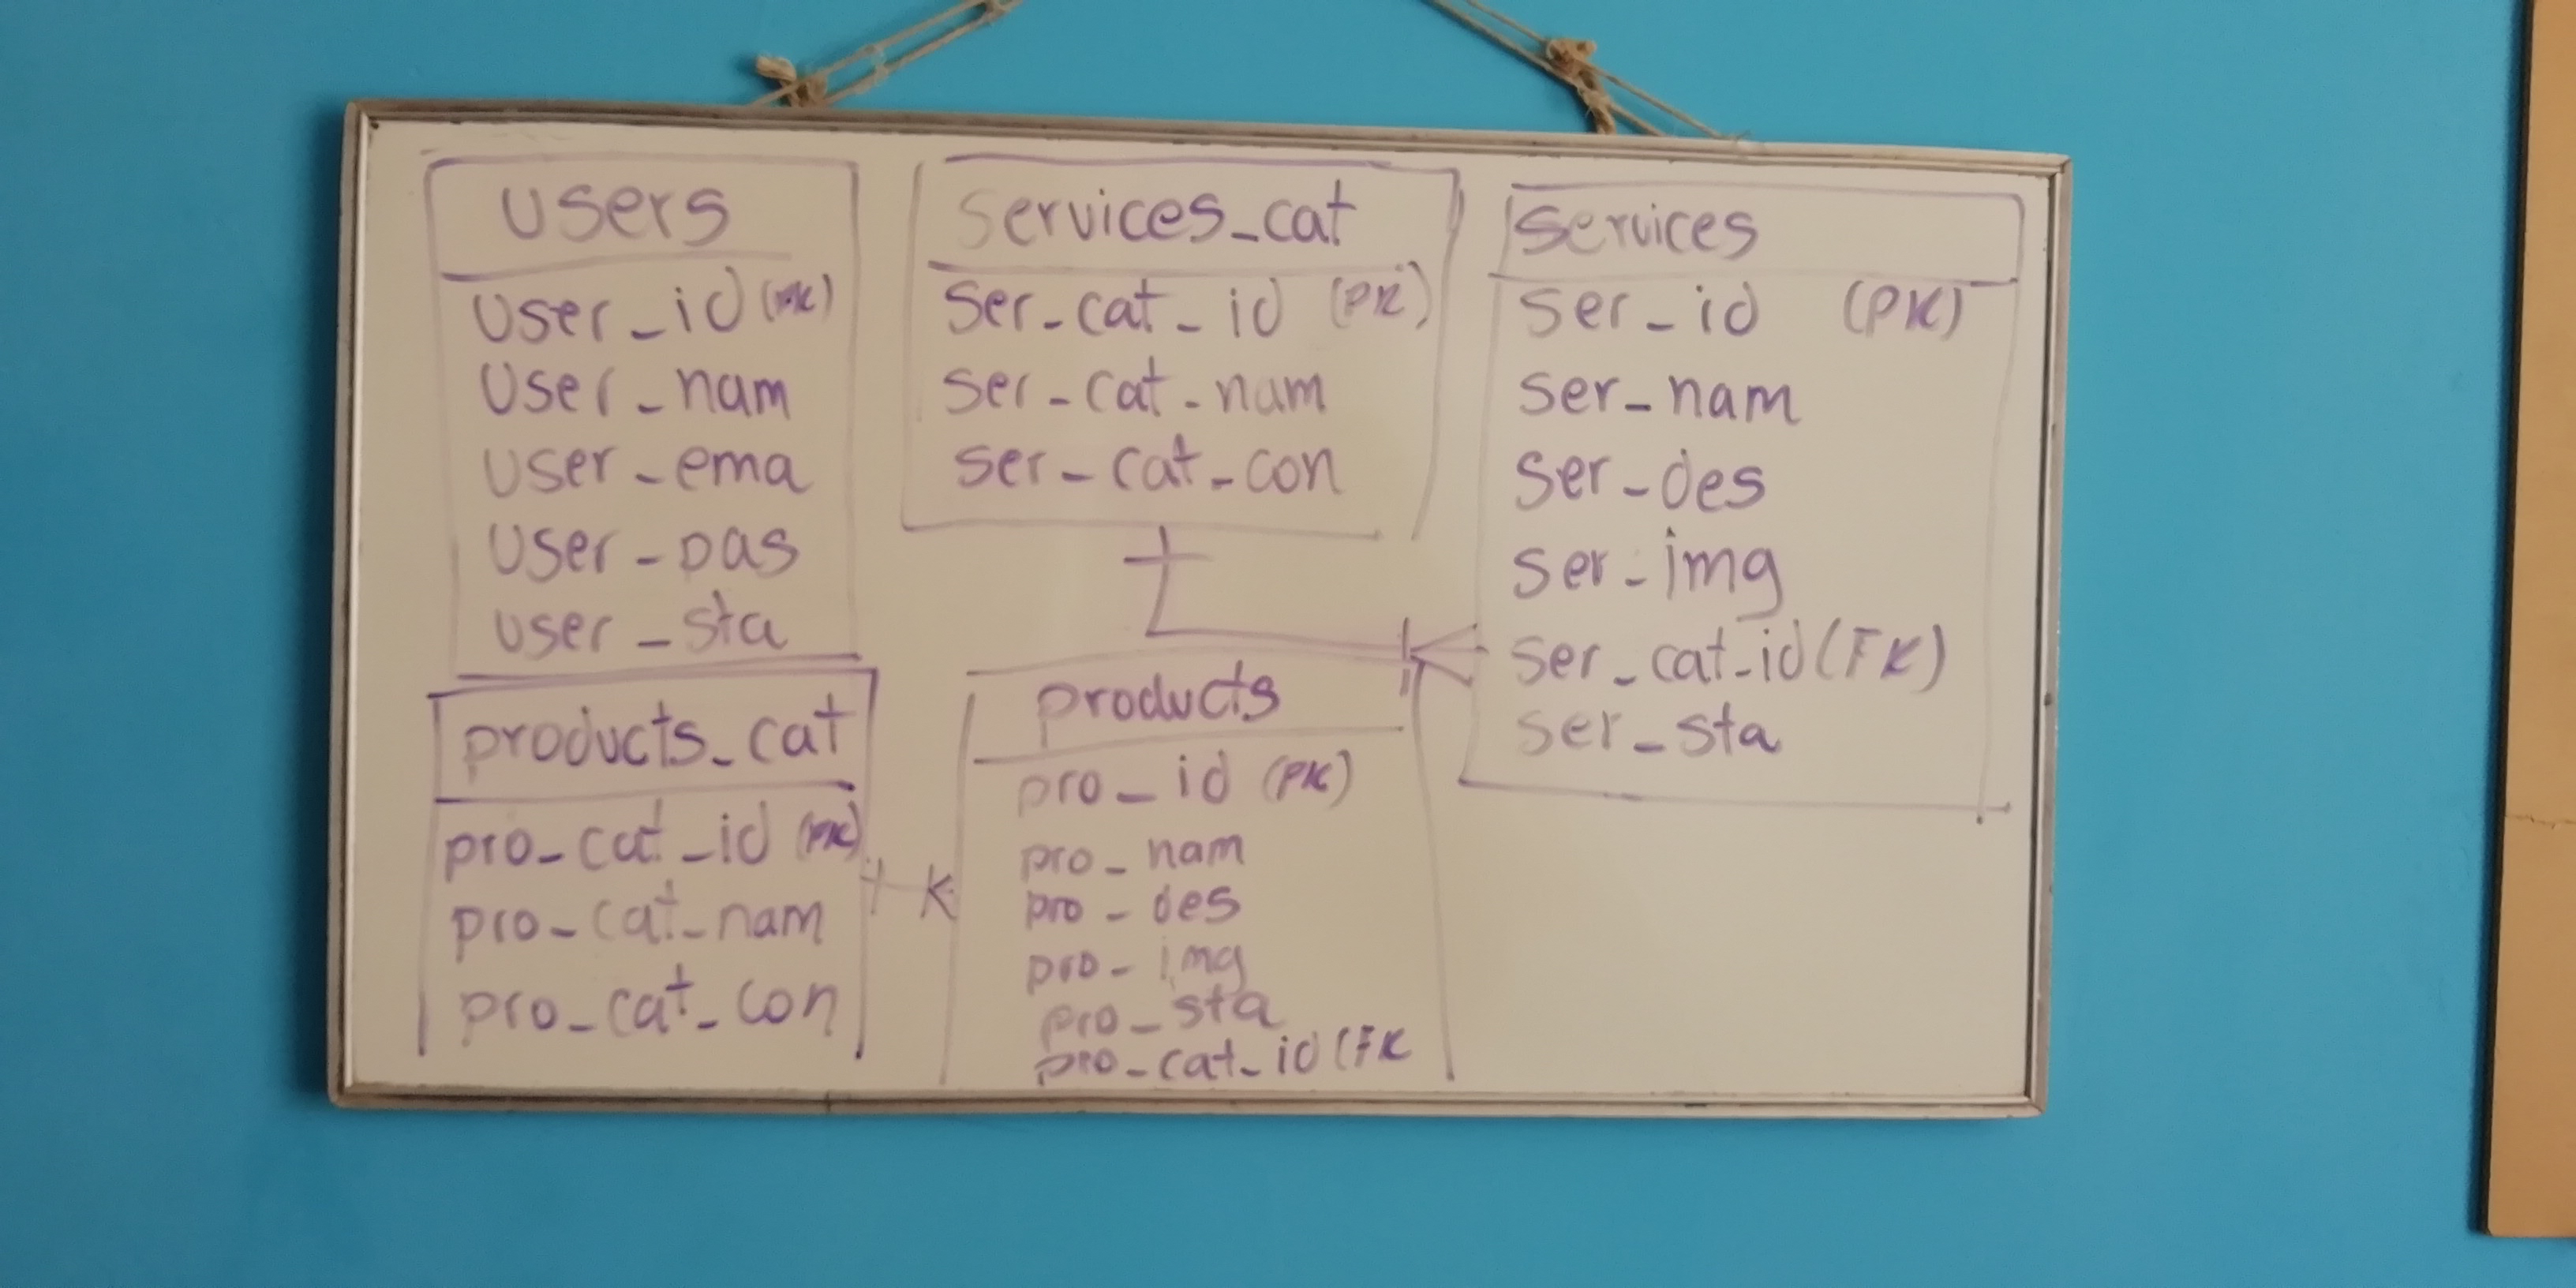 users
user_id (PK)
user_nam
user_ema
user_pas
user_sta
services_cat
ser_cat_id (PK)
ser_cat_nam
ser_cat_con
services
ser_id (PK)
ser_nam
ser_des
ser_img
ser_cat_id (FK)
ser_sta
products_cat
pro_cat_id (PK)
pro_cat_nam
pro_cat_con
products
pro_id (PK)
pro_nam
pro_des
pro_img
pro_sta
pro_cat_id (FK